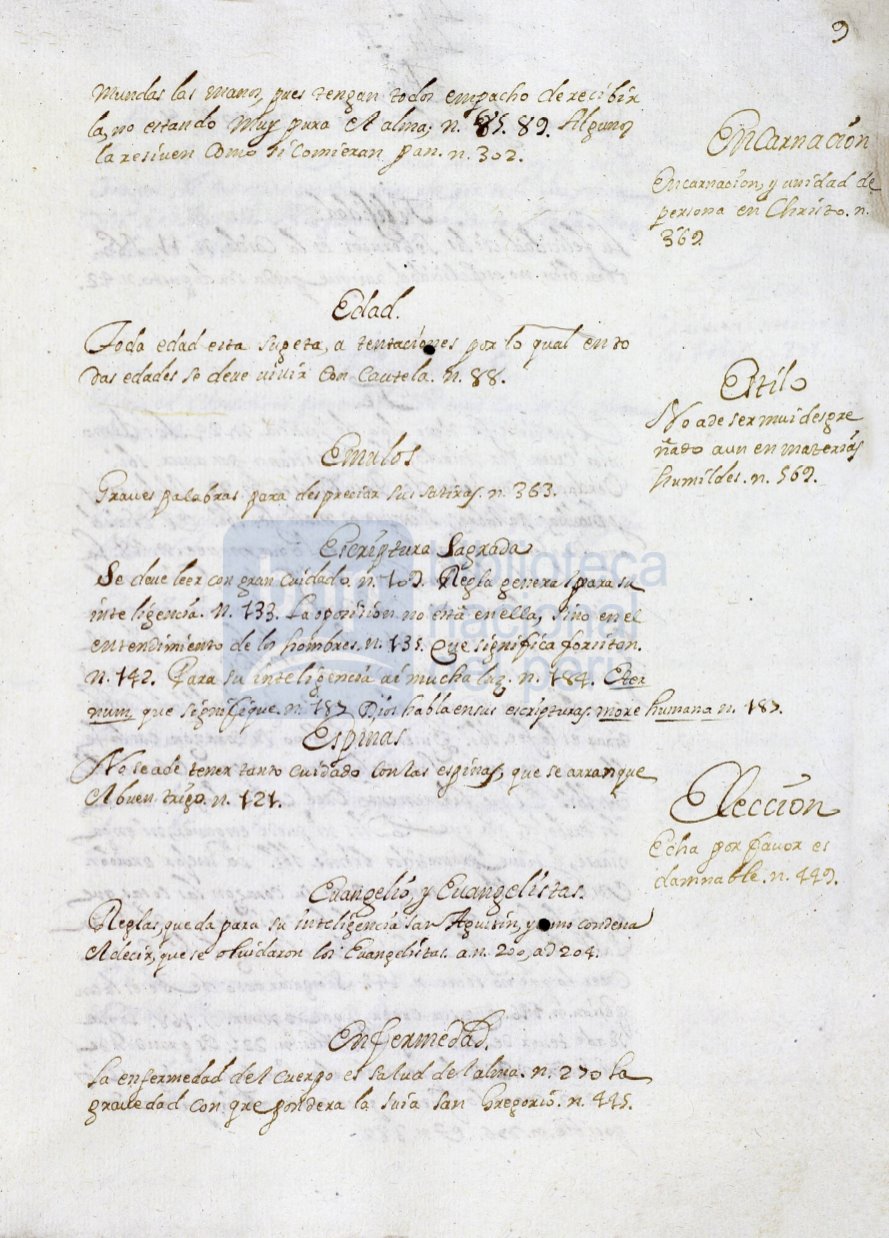 9
mundas las manos, pues tengan todos empacho de recibir
la, no estando muy pura el alma, n. 85. 89. Algunos
la resiven como si comieran pan. n. 302.
Edad.
Toda edad esta sugeta, a tentaciones por lo qual en to
das edades se deve vivir con Cautela. n. 88.
Emulos
Graves palabras para despreciar sus satiras. n. 363.
Escriptura Sagrada
Se deve leer con gran cuidado. n. 109. Regla general para su
inteligencia. n. 133. La oposition no està en ella, sino en el
entendimiento de los hombres. n. 135. Que significa forsitan.
n. 142. Para su inteligencia ai mucha luz. n. 184. Eter
num que signifique. n. 187. Dios habla en sus escripturas more humana n. 187.
Espinas
No se a de tener tanto cuidado con las espinas, que se arranque
el buen trigo. n. 121.
Evangelio, y Evangelistas.
Reglas, que da para su inteligencia San Agustin, y como condena
el decir, que se olvidaron los Evangelistas. a n. 200, ad 204.
Enfermedad.
La enfermedad del cuerpo es salud de l'alma. n. 270 La
gravedad con que pondera la suia San Gregorio. n. 445.
Encarnaciòn
Encarnacion, y unidad de
persona en Christo. n.
369.
Estilo
No a de ser mui despre
ñado aun en materias
humildes. n. 569.
Elecciòn
Echa por favor es
damnable. n. 449.
biblioteca
nacional
del perú
bnp